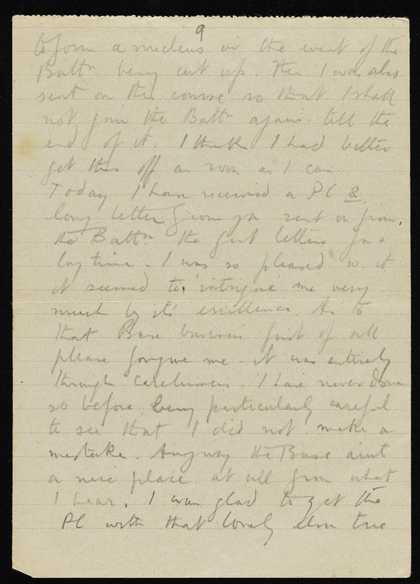 9
to form a nucleus in the event of the
Battn being cut up. Then I was also
sent on this course so that I shall
not join the Battn again till the
end of it. I think I had better
get this off as soon as I can.
Today I have received a PC &
long letter from you sent on from
the Battn the first letters for a
long time. I was so pleased w. it
it seemed to intrigue me very
much by its excellence. As to
that Base business first of all
please forgive me - it was entirely
through carelessness. I have never done
so before being particularly careful
to see that I did not make a
mistake. Anyway the Base aint
a nice place at all from what
I hear. I was glad to get the
PC with that lovely elm tree